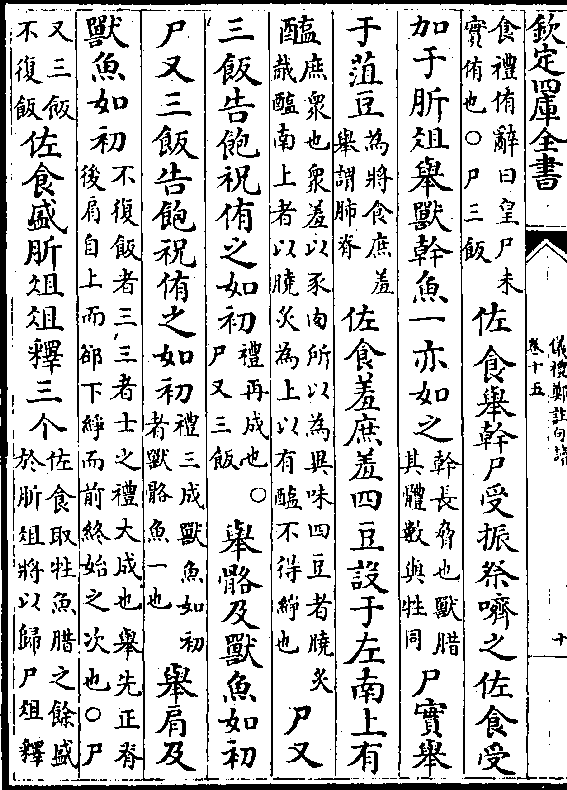 欽定四庫全書
儀禮鄭註句讀
卷十五
十
食禮侑辭曰皇尸未
實侑也○尸三飯
佐食舉幹尸受振祭嚌之佐食受
加于肵俎舉獸幹魚一亦如之
幹長脅也獸腊
其體數與牲同
尸實舉
于菹豆
為將食庶羞
舉謂肺脊
佐食羞庶羞四豆設于左南上有
醢
庶衆也衆羞以豕肉所以為異味四豆者膮炙
胾醢南上者以膮炙為上以有醢不得綪也
尸又
三飯告飽祝侑之如初
禮再成也○
尸又三飯
舉骼及獸魚如初
尸又三飯告飽祝侑之如初
禮三成獸魚如初
者獸骼魚一也
舉肩及
獸魚如初
不復飯者三三者士之禮大成也舉先正脊
後肩自上而卻下綪而前終始之次也○尸
又三飯
不復飯
佐食盛肵俎俎釋三个
佐食取牲魚腊之餘盛
於肵俎將以歸尸俎釋